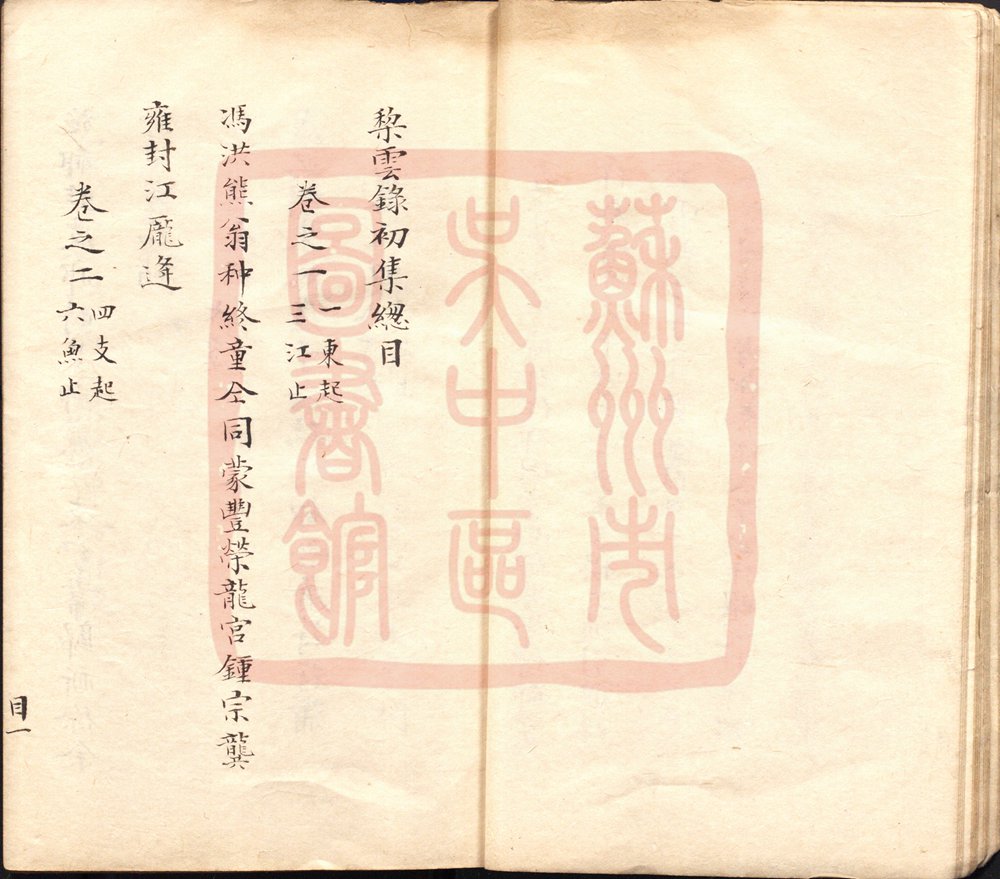 梨雲錄初集總目
卷之一 一東起 三江止
馮洪熊翁种終童仝同蒙豐榮龍宮鍾宗龔
雍封江龐逄
卷之二 四支起 六魚止
目一
蘇州市
吳中區
圖書館